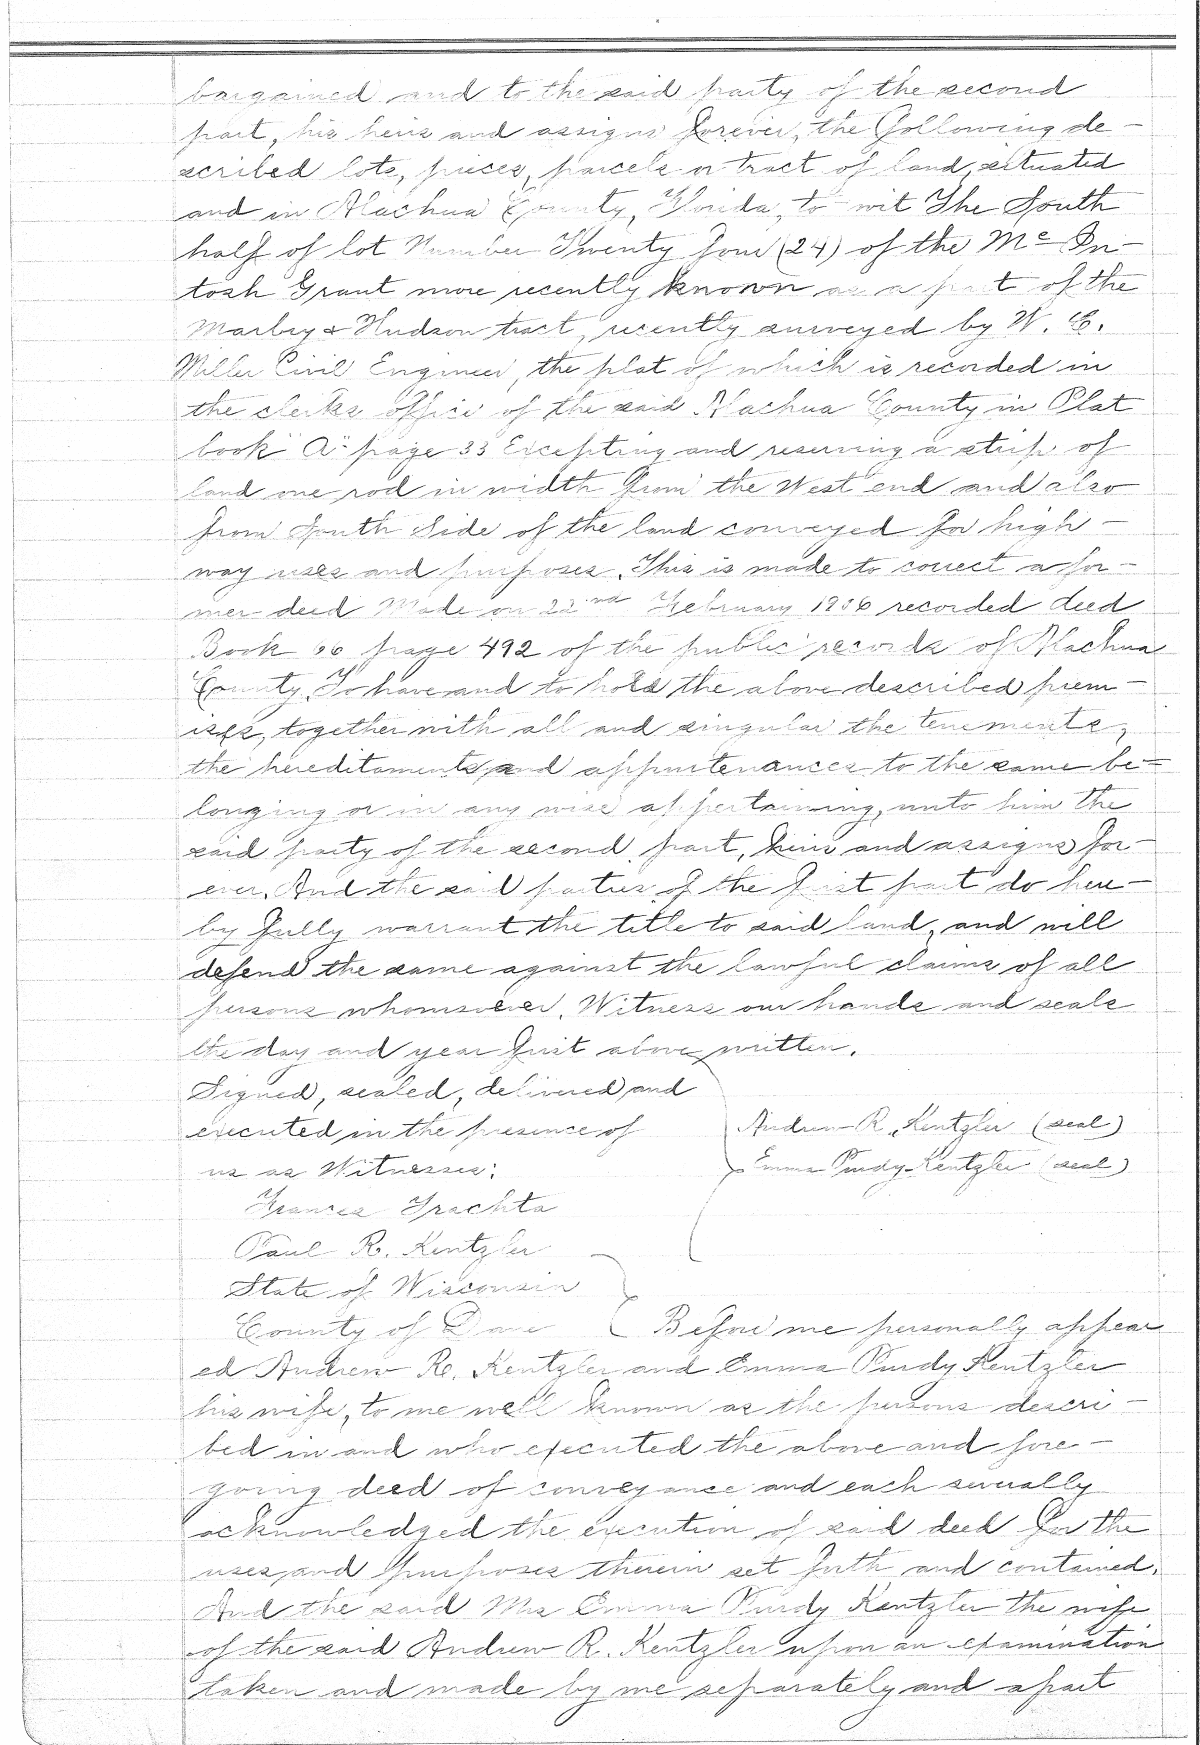 bargained and to the said party of the second
part, his heirs and assigns forever, the following de-
scribed lots, pieces, parcels or tract of land, situated
and in Alachua County, Florida, to wit The South
half of lot Number Twenty four (24) of the Mc In-
tosh Grant more recently known as a part of the
Marbey & Hudson tract, recently surveyed by W. C.
Miller Civil Engineer, the plat of which is recorded in
the clerks office of the said Alachua County in Plat
book "A" page 33 Excepting and reserving a strip of
land one rod in width from the West end and also
from South Side of the land conveyed for high-
way uses and purposes. This is made to correct a for-
mer deed Made on 22nd February 1906 recorded deed
Book 66 page 492 of the public records of Alachua
County. To have and to hold the above described prem-
ises, together with all and singular the tenements,
the hereditaments and appurtenances to the same be-
longing or in any wise appertaining, unto him the
said party of the second part, heirs and assigns for-
ever. And the said parties of the first part do here-
by fully warrant the title to said land, and will
defend the same against the lawful claims of all
persons whomsoever. Witness our hands and seals
the day and year first above written.
Signed, sealed, delivered and
executed in the presence of
us as Witnesses:
Andrew R. Kentzler (seal)
Emma Purdy Kentzler (seal)
Frances Trachta
Paul R. Kentzler
State of Wisconsin
County of Dane Before me personally appear
ed Andrew R. Kentzler and Emma Purdy Kentzler
his wife, to me well known as the persons descri-
bed in and who executed the above and fore-
going deed of conveyance and each severally
acknowledged the execution of said deed for the
uses and purposes therein set forth and contained.
And the said Mrs Emma Purdy Kentzler the wife
of the said Andrew R. Kentzler upon an examination
taken and made by me separately and apart